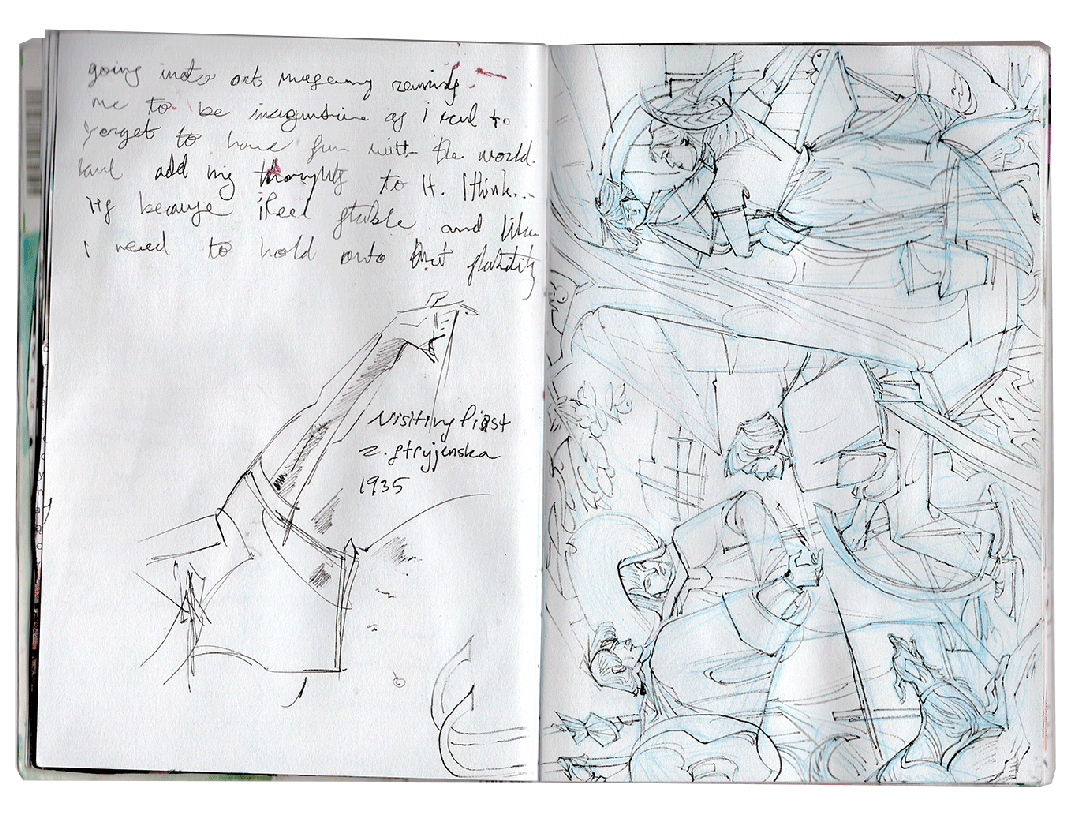 going into arts museums reminds
me to be imaginative as i tend to
forget to have fun with the world
and add my thoughts to it. I think...
its because i feel stable and like
i need to hold onto that
Visiting Priest
Z. Stryjenska
1935